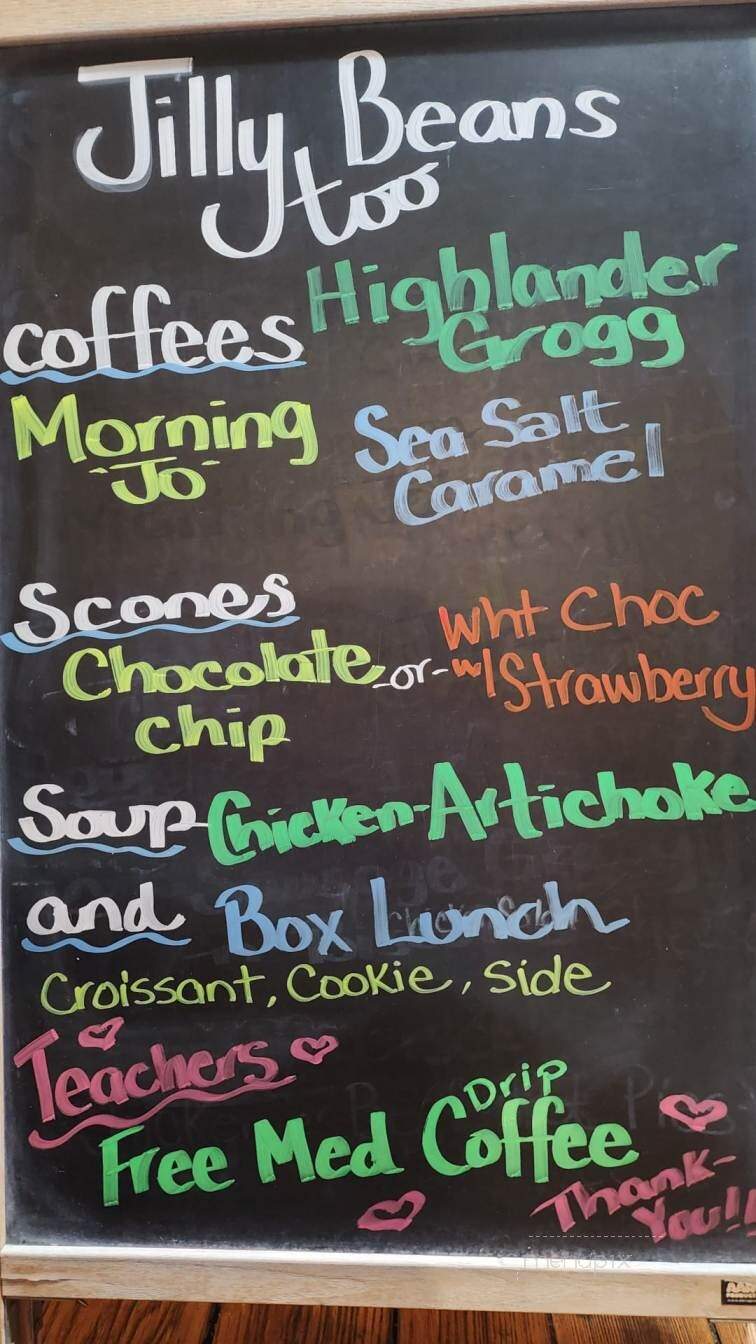 Jilly Beans
too
coffees Highlander
Grogg
Morning Sea Salt
Jo Caramel
Scones Wht Choc
Chocolate -or- w/ Strawberry
Chip
Soup Chicken-Artichoke
and Box Lunch
Croissant, Cookie, side
Teachers
Drip
Free Med Coffee
Thank-
You!!
menupix